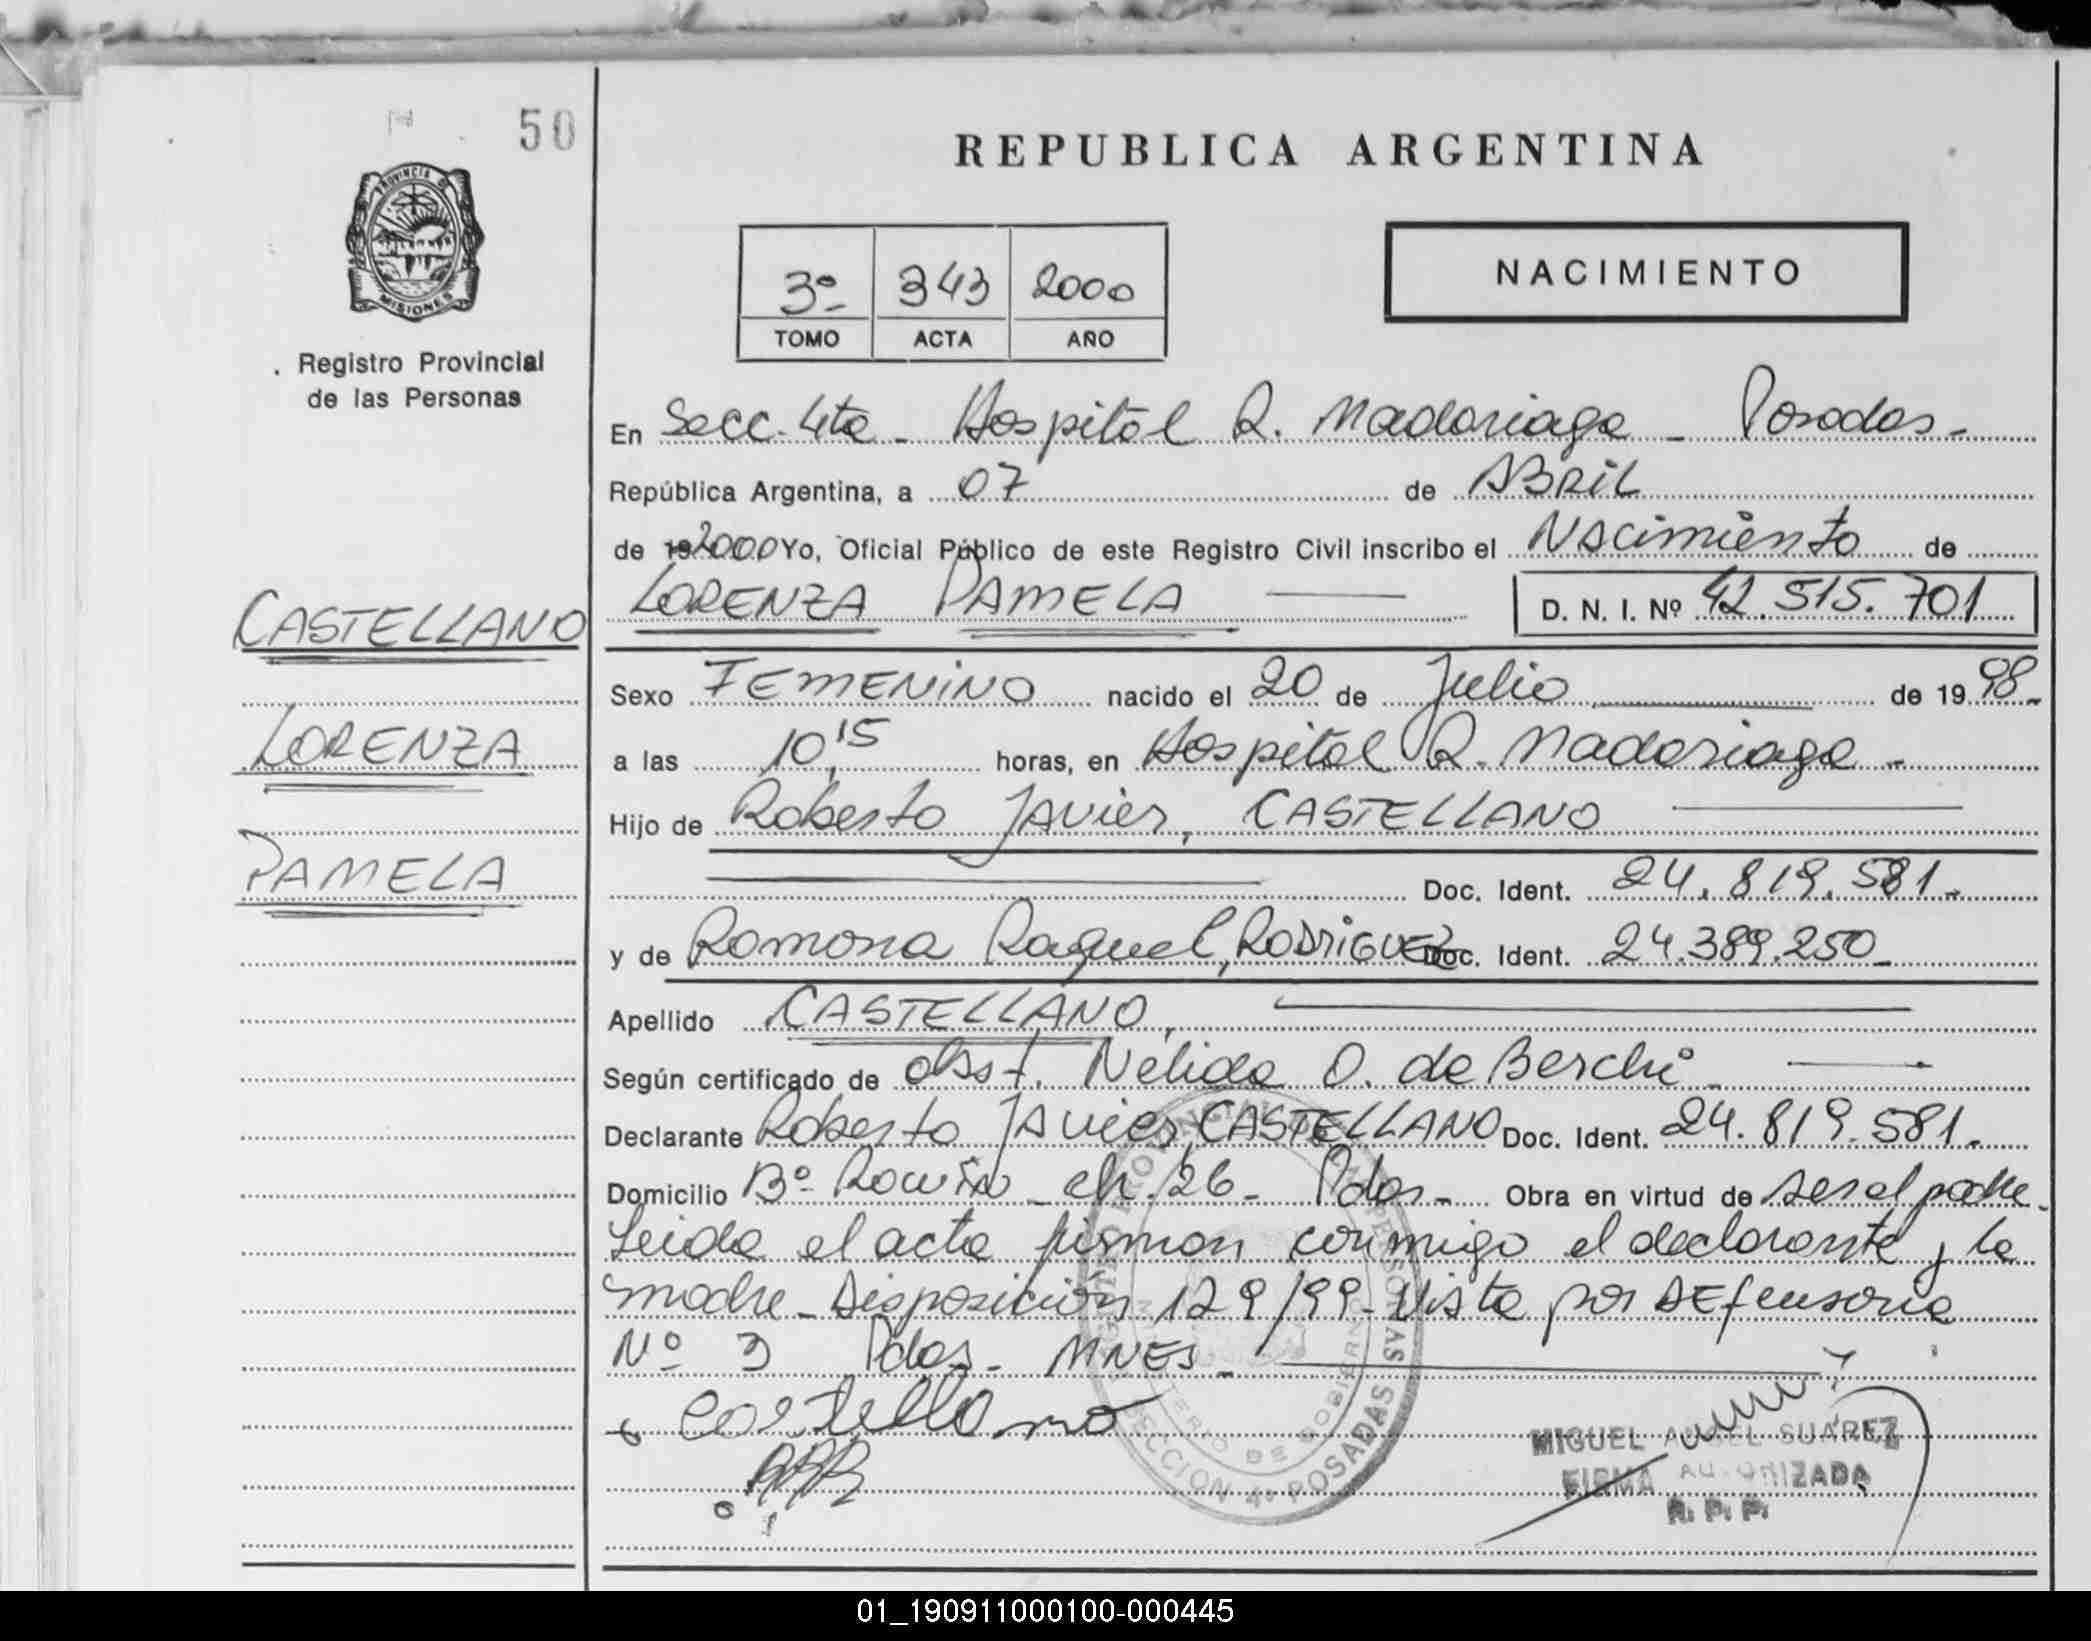 50
REPUBLICA ARGENTINA
PROVINCIA DE
MISIONES
Registro Provincial
de las Personas
3º 343 2000
TOMO ACTA AÑO
NACIMIENTO
En Secc. 4ta - Hospital R. Madariaga - Posadas -
República Argentina, a 07 de ABRIL
de 192000 Yo, Oficial Público de este Registro Civil inscribo el Nacimiento de
LORENZA PAMELA D. N. I. Nº 42.515.701
CASTELLANO
LORENZA
PAMELA
Sexo FEMENINO nacido el 20 de Julio de 1998-
a las 10,15 horas, en Hospital R. Madariaga -
Hijo de Roberto Javier, CASTELLANO
Doc. Ident. 24.819.581.-
y de Ramona Raquel, RODRIGUEZ Doc. Ident. 24.389.250-
Apellido CASTELLANO,
Según certificado de obst. Nélida O. de Berchi -
Declarante Roberto Javier, CASTELLANO Doc. Ident. 24.819.581.-
Domicilio Bº ch. 26- Pdas- Obra en virtud de ser el padre.
Leida el acta firman conmigo el declarante y la
madre - Disposición 129/99 - Vista por Defensoria
Nº 3 Pdas - MNES -
Castellano
RRR
REGISTRO PROVINCIAL DE LAS PERSONAS
MINISTERIO DE GOBIERNO
SECCION 4ª POSADAS
MIGUEL ANGEL SUAREZ
FIRMA AUTORIZADA
R. P. P.
01_190911000100-000445